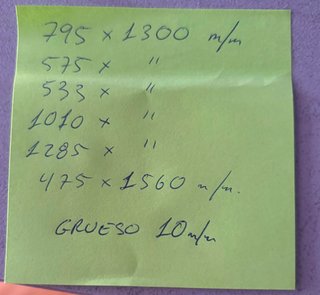 795 x 1300 m/m
575 x "
533 x "
1010 x "
1285 x "
475 x 1560 m/m.
GRUESO 10 m/m